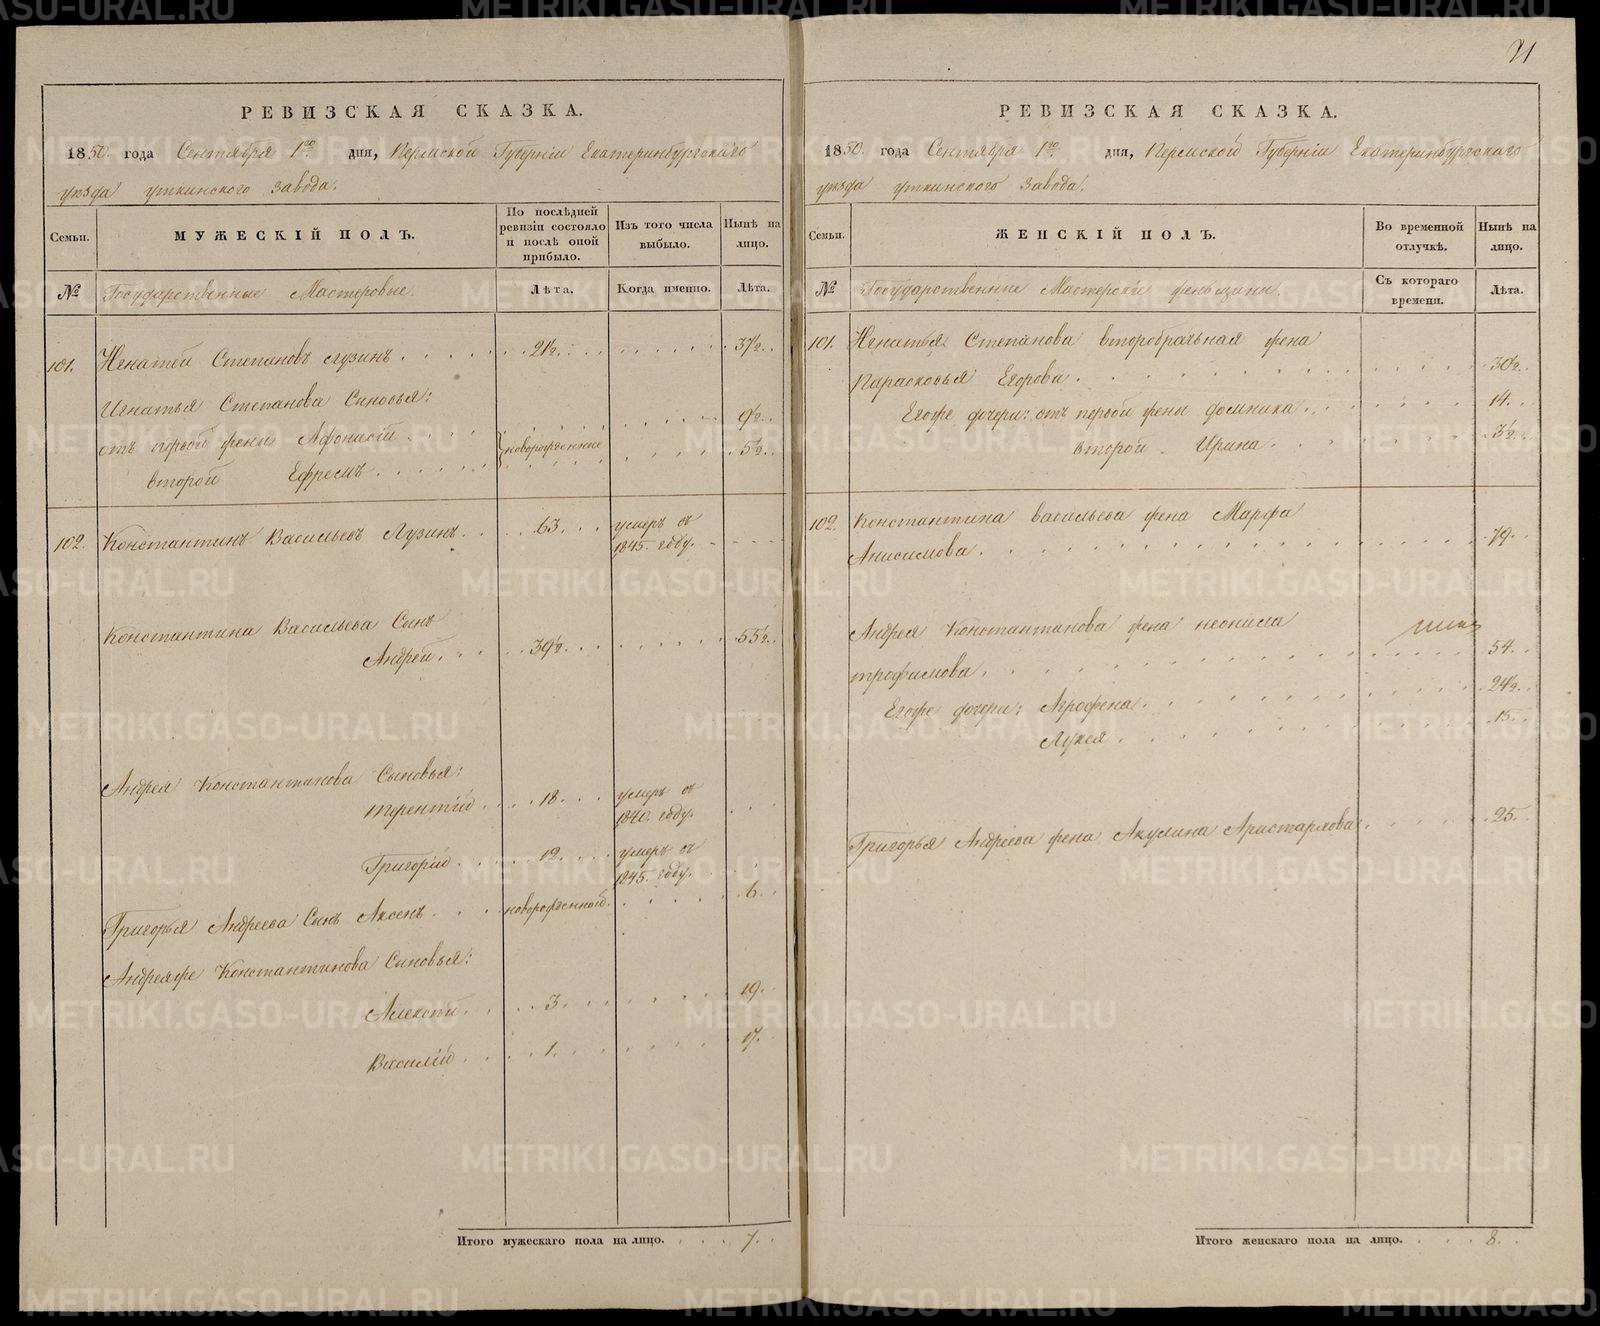 21
РЕВИЗСКАЯ СКАЗКА.
1850. года Сентября 1го дня, Пермской Губернiи Екатеринбургскаго
уѣзда уткинскаго завода.
Семьи.
МУЖЕСКIЙ ПОЛЪ.
По послѣдней ревизiи состояло и послѣ оной прибыло.
Изъ того числа выбыло.
Нынѣ на лицо.
№
Государственные Мастеровые.
Лѣта.
Когда именно.
Лѣта.
101. Игнатей Степановъ лузинъ. 21½. 37½.
Игнатья Степанова Сыновья:
отъ первой жены Афонасiй новорожденные 9½.
второй Ефремъ. 5½.
102. Константинъ Васильевъ Лузинъ. 63. умеръ въ
1845. году.
Константина Васильева Сынъ
Андрей. 39½. 55½.
Андрея Константинова Сыновья:
терентiй 18. умеръ въ
1840. году.
Григорiй 12. умеръ въ
1845. году.
Григорья Андреева Сынъ Аксенъ. новорожденной. 6.
Андреяже Константинова Сыновья:
Алексѣй. 3. 19.
Василiй 1. 17.
Итого мужескаго пола на лицо. 7.
РЕВИЗСКАЯ СКАЗКА.
1850. года Сентября 1го дня, Пермской Губернiи Екатеринбургскаго
уѣзда уткинскаго завода.
Семьи.
ЖЕНСКIЙ ПОЛЪ.
Во временной отлучкѣ.
Нынѣ на лицо.
№
Государственные Мастерски женьщины.
Съ котораго времени.
Лѣта.
101. Игнатья Степанова второбрачная жена
Парасковья Егорова. 30½.
Егоже дочери: отъ первой жены домника. 14.
второй Ирина. 3½.
102. Константина васильева жена Марфа
Анисимова. 79.
Андрея Константинова жена неонила
трофимова. 54.
Егоже дочери: Агрофена. 24½.
Лукея. 15.
Григорья Андреева жена Акулина Аристархова. 25.
Итого женскаго пола на лицо. 8.
METRIKI.GASO-URAL.RU